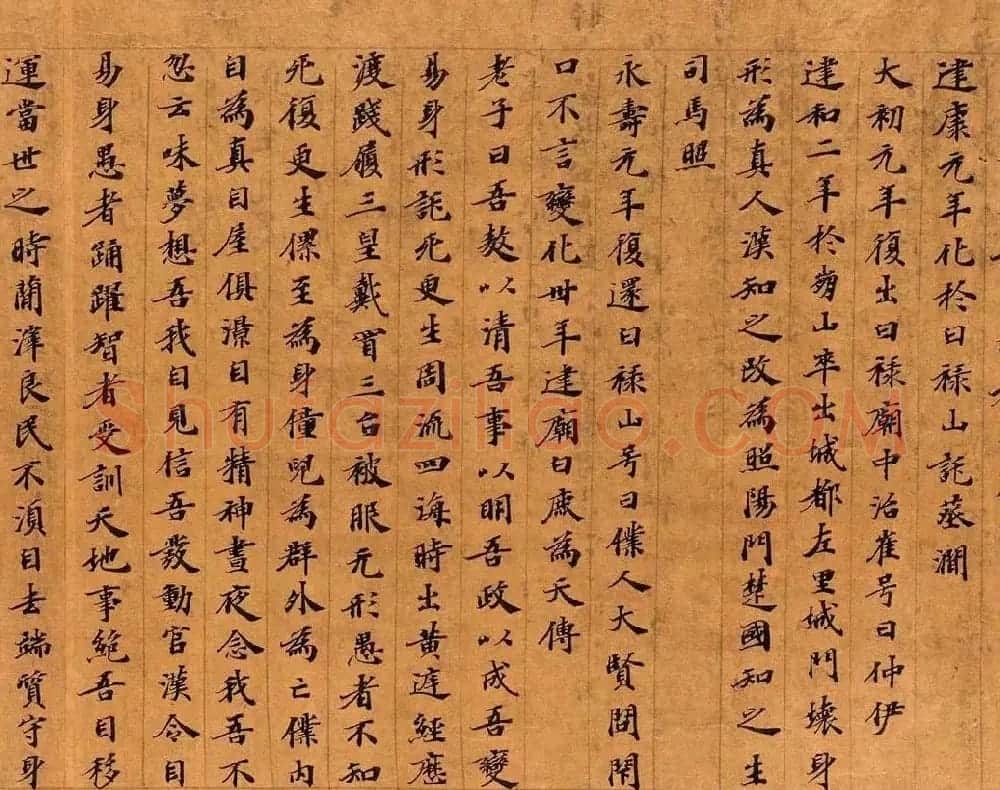 建康元年化於曰祿山託葬澗
大初元年復出曰祿廟中治崔号曰仲伊
建和二年於山卒出城都左里城門壞身
形為真人漢知之改為照陽門楚國知之生
司馬照
永壽元年復還曰祿山号曰僕人大賢閉閇
口不言變化卅年建廟曰鹿為天傳
老子曰吾敖以清吾事以明吾政以成吾變
易身形託死更生周流四海時出黃庭經歷
渡踐履三皇戴冒三台被服元形愚者不知
死復更生僕至為身僮兒為群外為亡僕內
自為真自屋俱澋自有精神晝夜念我吾不
忽云味夢想吾我自見信吾發動官漢令自
易身愚者踊躍智者受訓天地事絕吾自移
運當世之時蕳澤良民不湏自去端質守身
Shufaziliao.COM